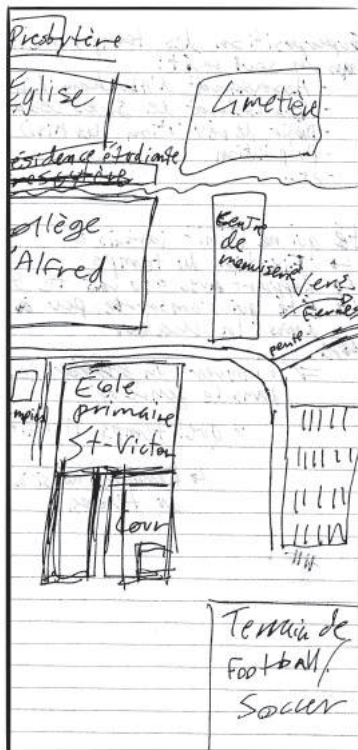 Presbytère
Église
Cimetière
ésidence étudiante
llège
d'Alfred
Centre
de
menuiserie
Vers
Fermes
pente
École
primaire
St-Victor
Cour
Terrain de
Football/
Soccer